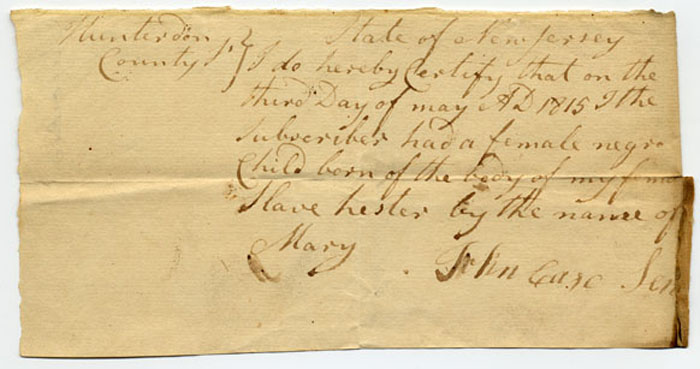 Hunterdon State of New Jersey
County Ss I do hereby Certify that on the
third Day of may AD 1815 I the
Subscriber had a female negro
Child born of the body of my fema
Slave hester by the name of
Mary
John Case Sen